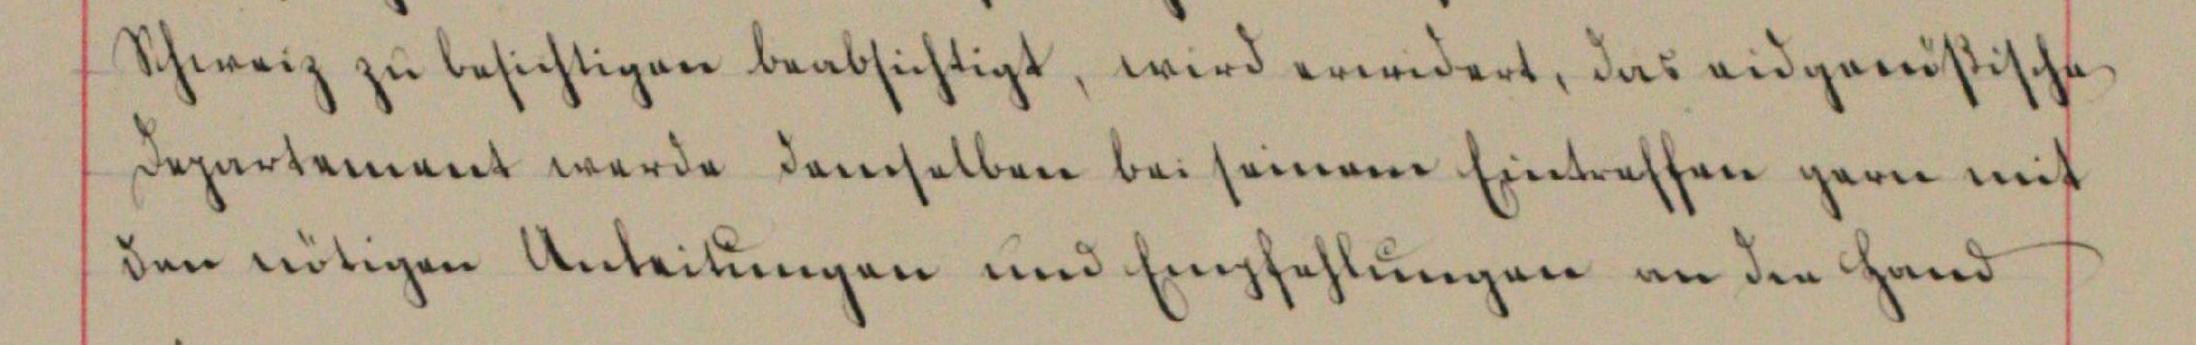 Schweiz zu besichtigen beabsichtigt, wird erwidert, das eidgenößische
Departement werde demselben bei seinem Eintreffen gern mit
den nötigen Anleitungen und Empfehlungen an die Hand